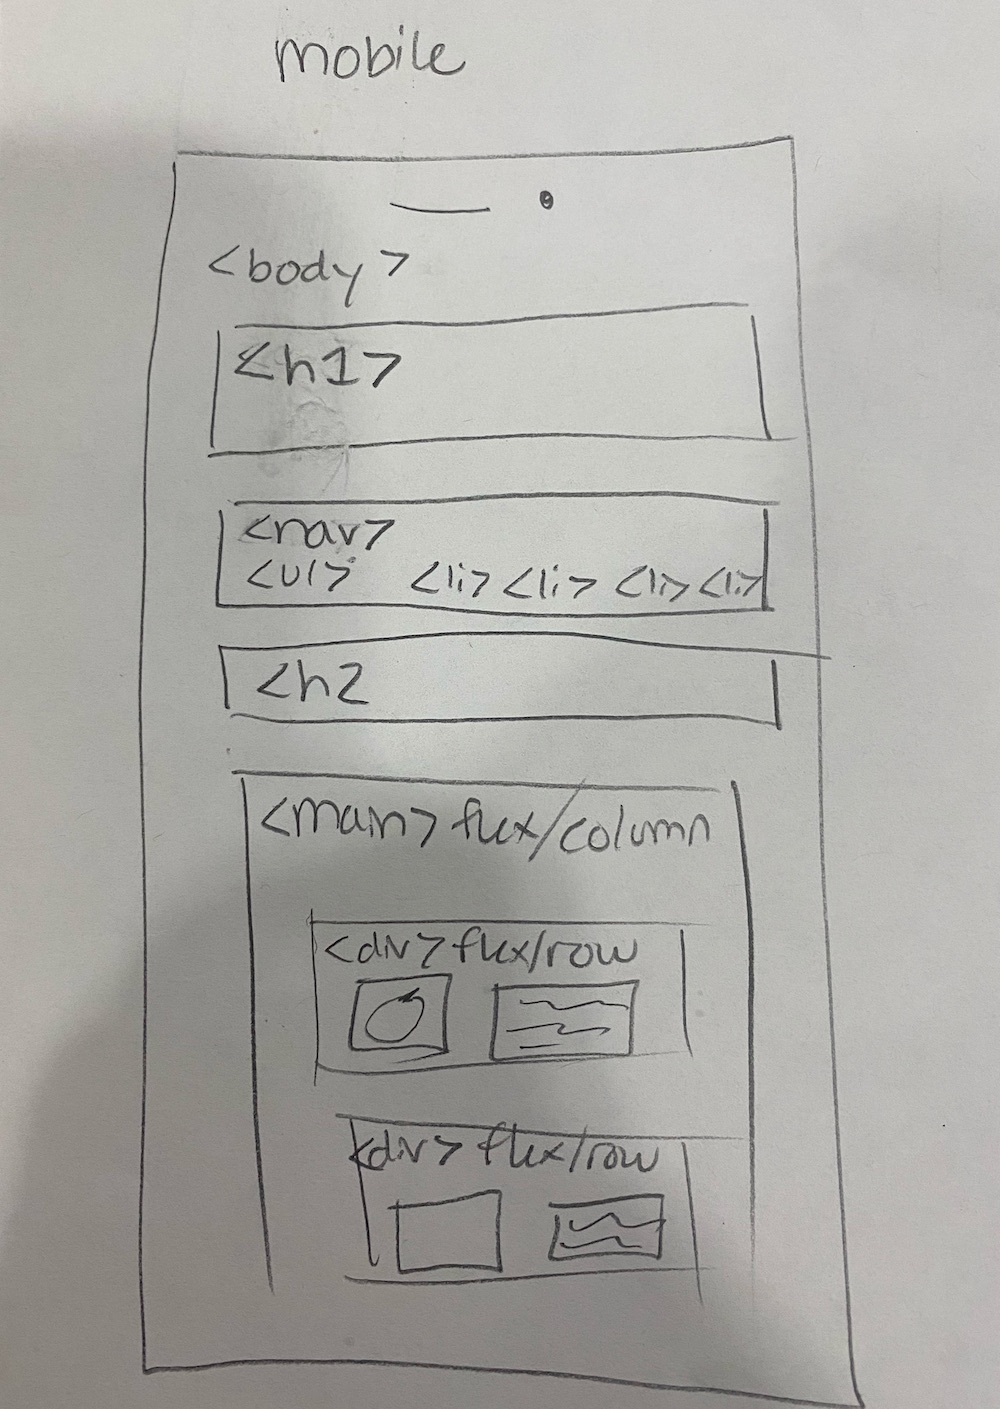 mobile
<body>
<h1>
<nav>
<ul> <li> <li> <li> <li>
<h2
<main> flex/column
<div> flex/row
<div> flex/row